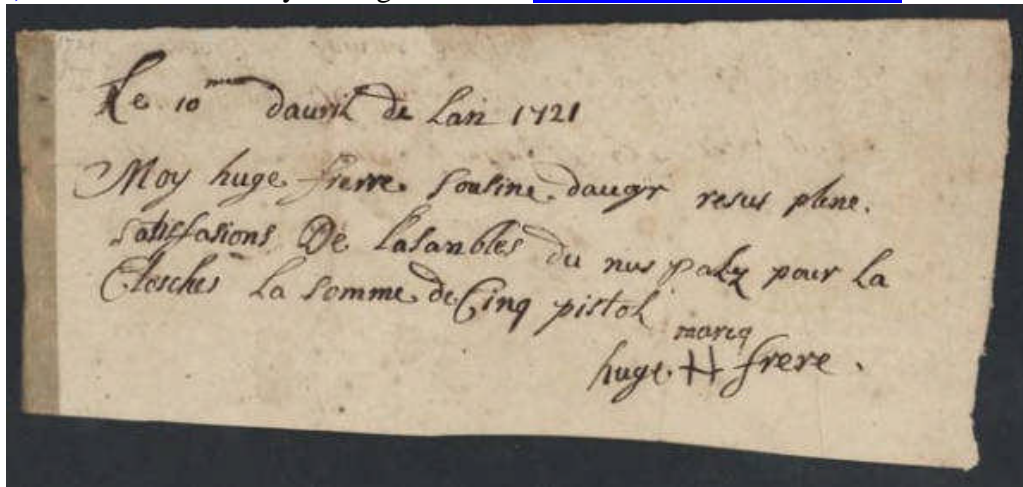 Le 10me dauril de Lan 1721
Moy huge frerre souline daugr resus plene.
satisfasions De lasanbles du nus paly pour la
Closches La somme de Cinq pistol
marcq
huge. H frere.